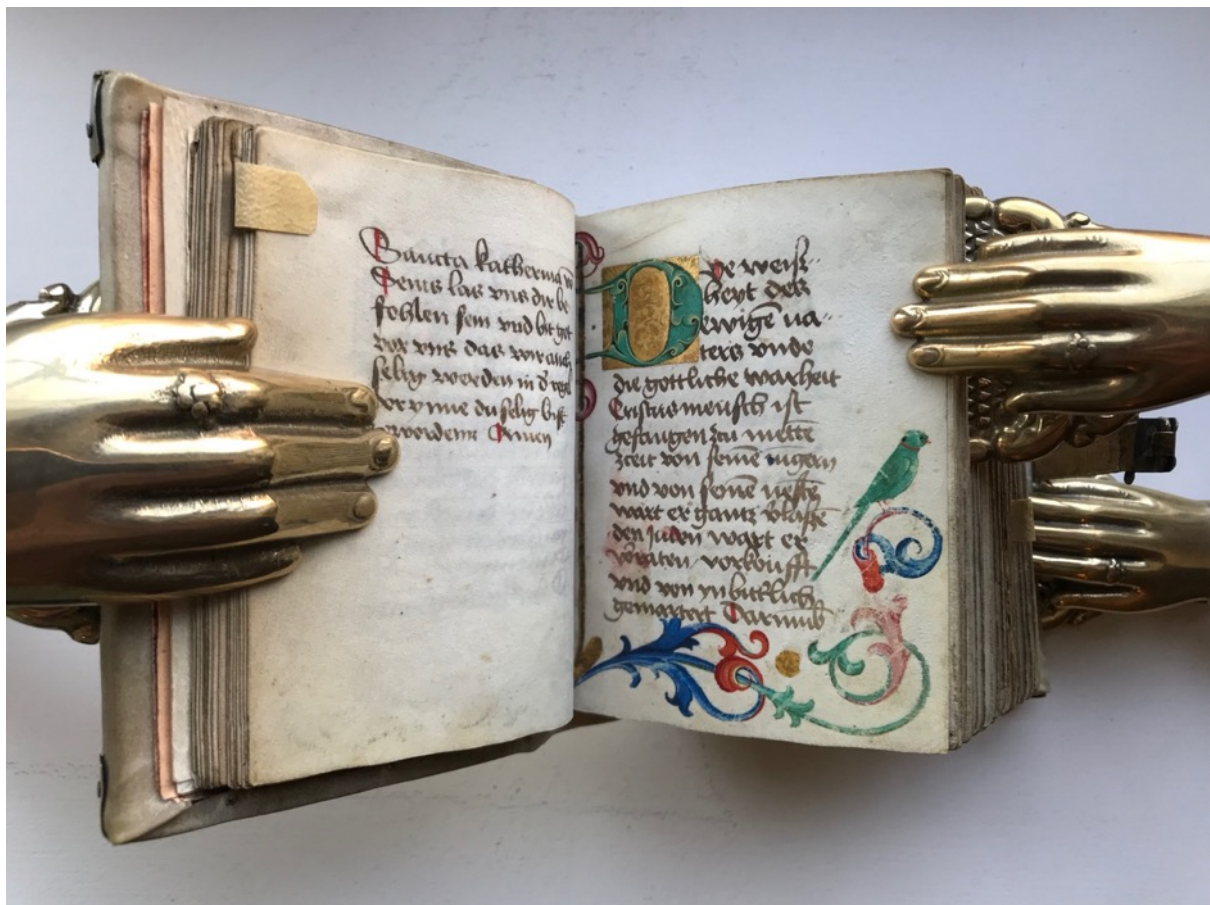 Sancta katherina vō
Senis las vns die be
fohlen sein vnd bit got
vor vns das wir auch
selig werden in d̄ regel
dor ynne du selig bist
worden Amen
Die weiß¬
heyt des
ewigē va¬
ters vnde
die gottliche warheit
Cristus mensch ist
gefangen zcu mette
zceit von seinē iugern
vnd von seinē
wart er gantz
den juden wart er
vorkoufft
vnd von yn bittlich
gemartert Darumb